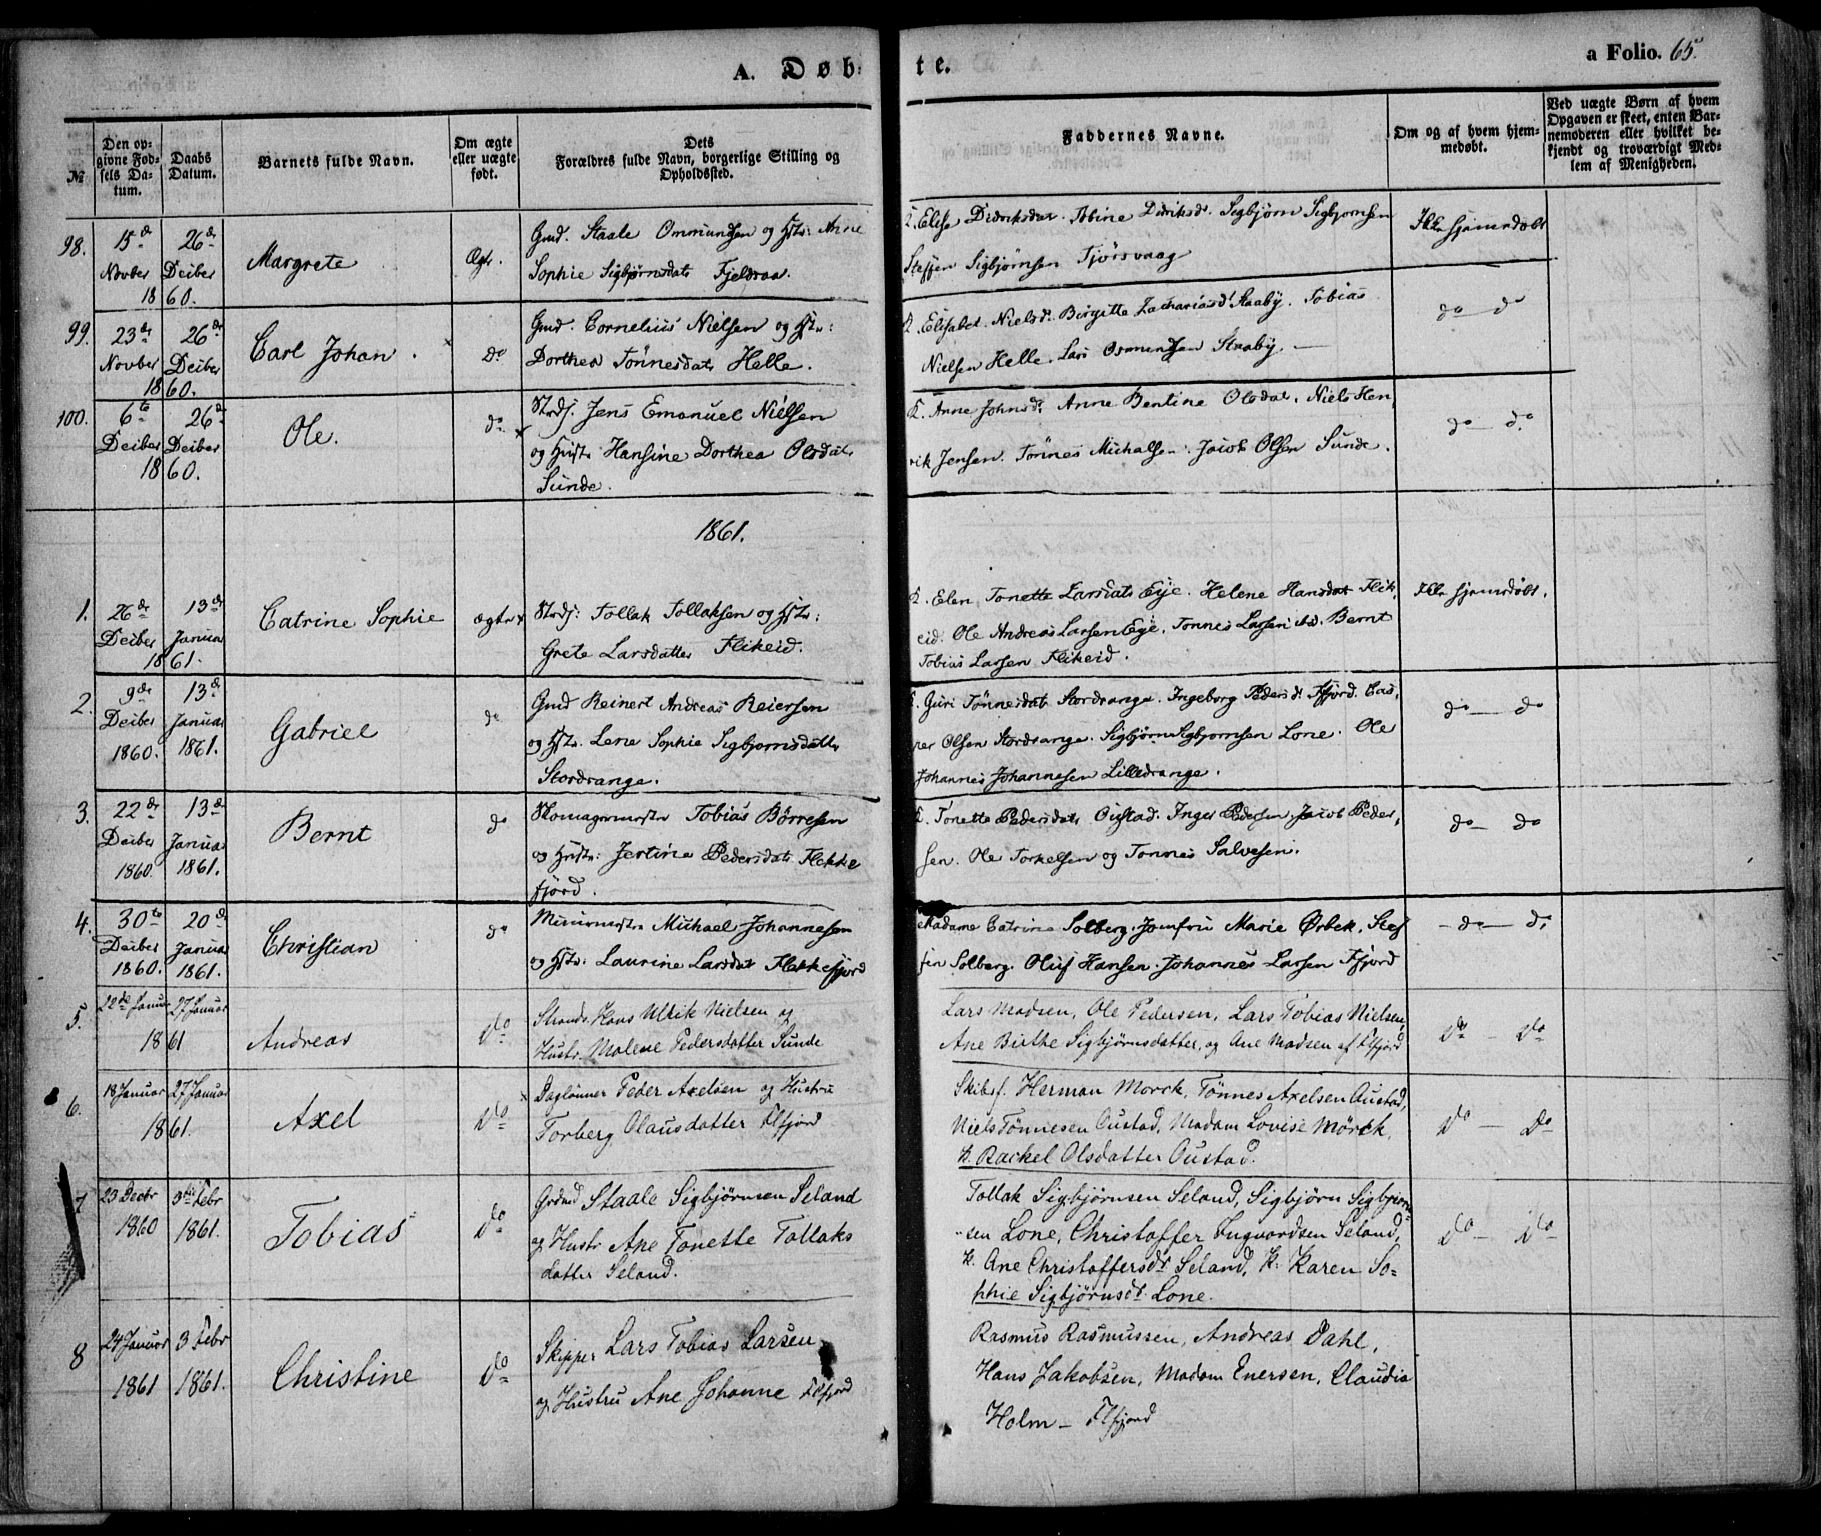 A. Døb-
te.
a Folio. 65.
№
Den op-
givne Fød-
sels Da-
tum.
Daabs
Datum.
Barnets fulde Navn.
Om ægte
eller uægte
født.
Dets
Forældres fulde Navn, borgerlige Stilling og
Opholdssted.
Faddernes Navne.
Om og af hvem hjem-
medøbt.
Ved uægte Børn af hvem
Opgaven er skeet, enten Bar-
nemoderen eller hvilket be-
kjendt og troværdigt Med-
lem af Menigheden.
98.
15de
Novber
26de
Deiber
1860.
Margrete
Ægte.
Gmd. Staale Ommundsen og Hstr: Anne
Sophie Sigbjørnsdatr Fjeldsaa.
K. Elise Didriksdat. Tobine Didriksd. Sigbjørn Sigbjørnsen
Steffen Sigbjørnsen Tjørsvaag
Ikke hjemmedøbt
99.
23de
Novber
26de
Deiber
1860.
Carl Johan.
do
Gmd. Cornelius Nielsen og Hstr:
Dorthea Tønnesdatr Helle.
K. Elisabet Nielsd. Birgitte Zachariasd. Staaby. Tobias
Nielsen Helle. Lars Osmundsen Staaby. —
do — do
100.
6te
Deiber
26de
Deiber
1860.
Ole.
do
Strdsj. Jens Emanuel Nielsen
og Hustr Hansine Dorthea Olsdatr
Sunde.
K. Anne Johnsd. Anne Bentine Olsdat. Niels Hen,
rik Jensen. Tønnes Michalsen. Jacob Olsen Sunde.
do — do
1861.
1.
26de
Deiber
13de
Januar
1861.
Catrine Sophie
ægte
Strdsj: Tollak Tollaksen og Hstr:
Grete Larsdatter Flikeid.
K. Elen Tonette Larsdatr Eye. Helene Hansdat Flik,
eid. Ole Andreas Larsen Eye. Tønnes Larsen ibd. Bernt
Tobias Larsen Flikeid.
Ikke hjemmedøbt.
2.
9de
Deiber
1860.
13de
Januar
1861.
Gabriel
do
Gmd Reinert Andreas Reiersen
og Hstr. Lene Sophie Sigbjørnsdatter
Stordrange.
K. Guri Tønnesdatr Stordrange. Ingeborg Pedersd. Ffjord. Cas,
per Olsen Stordrange. Sigbjørn Sigbjørnsen Lone. Ole
Johannes Johannesen Lilledrange.
do — do
3.
22de
Deiber
1860.
13de
Januar
1861.
Bernt
do
Skomagermestr Tobias Børresen
og Hustr: Jertine Pedersdatr Flekke
fjord.
K. Tonette Pedersdatr Oustad. Inger Pedersen. Jacob Peder,
sen. Ole Torkelsen og Tønnes Salvesen.
do — do
4.
30te
Deiber
1860.
20de
Januar
1861.
Christian
do
Muurmestr Michael Johannesen
og Hstr: Laurine Larsdat Flekkefjord
Madame Catrine Solberg. Jomfru Marie Ørbek. Stef
fen Solberg. Oluf Hansen. Johannes Larsen Ffjord
do — do
5.
22de Januar
27 Januar
1861
Andreas
Do
Strands. Hans Ulrik Nielsen og
Hustr. Malene Pedersdatter Sunde
Lars Madsen, Ole Pedersen, Lars Tobias Nielsen,
Ane Birthe Sigbjørnsdatter, og Ane Madsen af Flfjord
Do — Do
6.
18 Januar
27 Januar
1861.
Axel
Do
Daglønner Peder Axelsen og Hustru
Torberg Olausdatter Flfjord
Skibsf. Herman Morck, Tönnes Axelsen Oustad,
Niels Tönnesen Oustad, Madam Lovise Mörck,
k. Rackel Olsdatter Oustad.
Do — Do
7
23 Decbr
1860
3die Febr
1861.
Tobias
Do
Grdmd Staale Sigbjörnsen Seland
og Hustr Ane Tonette Tollaks
datter Seland.
Tollak Sigbjörnsen Seland, Sigbjörn Sigbjörn-
sen Lone, Christoffer Ingvardsen Seland,
k. Ane Christoffersdr Seland, k. Karen So-
phie Sigbjörnsdr Lone.
Do — Do
8
24 Januar
1861
3 Febr
1861.
Christine
Do
Skipper Lars Tobias Larsen
og Hustru Ane Johanne Flfjord
Rasmus Rasmussen, Andreas Dahl,
Hans Jakobsen, Madam Enersen, Claudia
Holm — Flfjord